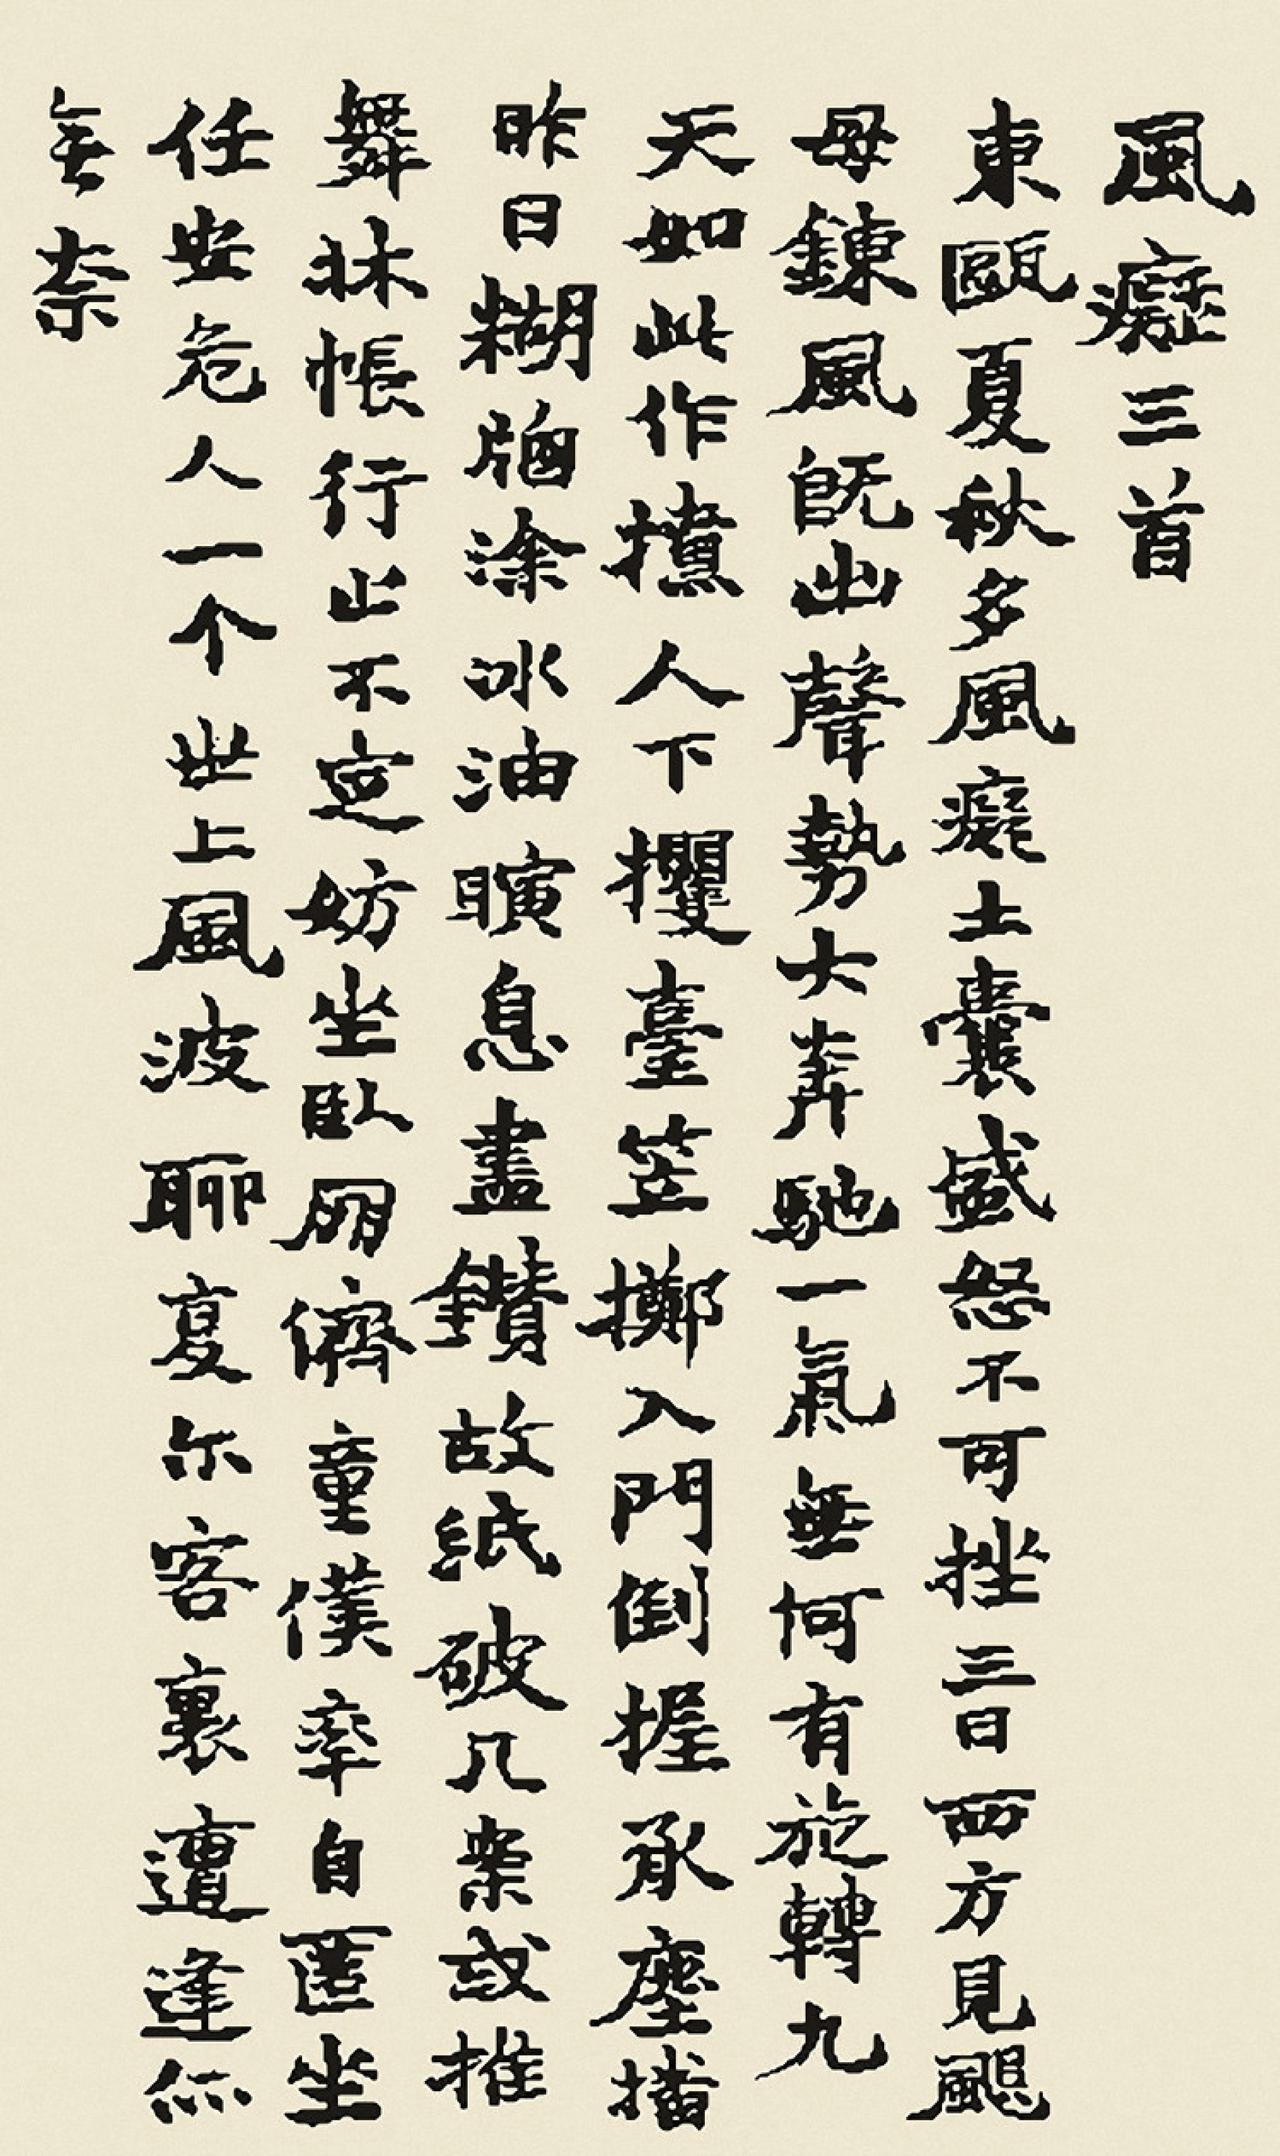 風癡三首
東甌夏秋多風癡土囊盛怒不可挫三日西方見颶
母鍊風既出聲勢大奔馳一氣無何有旋轉九
天如此作擾人下攫臺笠擲入門倒握承塵播
昨日糊牕涂冰油曠息盡鑽故紙破几案或推
舞牀帳行止不定妨坐臥朋儕童僕率自匿坐
任安危人一个世上風波聊夏尔客裏遭逢仏
無奈